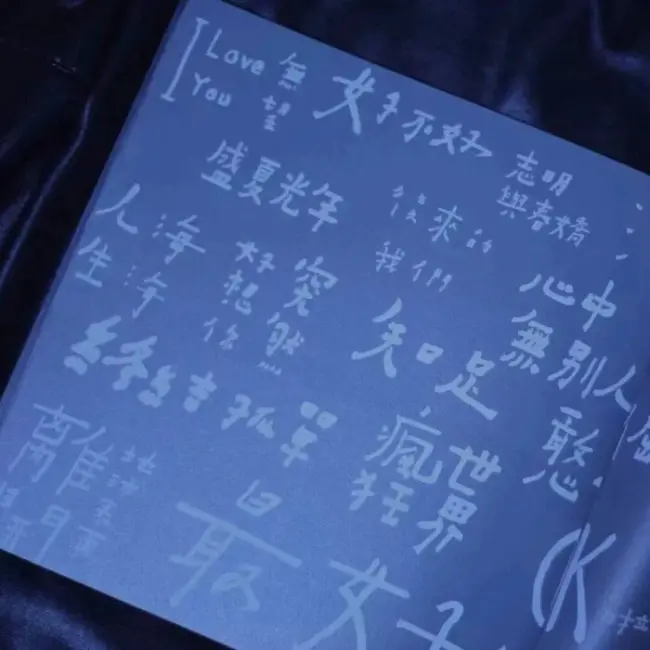 I Love You 無望
好不好
志明
與春嬌
盛夏光年
後來的
我們
人生海海
突然好想你
心中無別人
知足
終結孤單
瘋狂世界
憨
離開地球表面
最
好